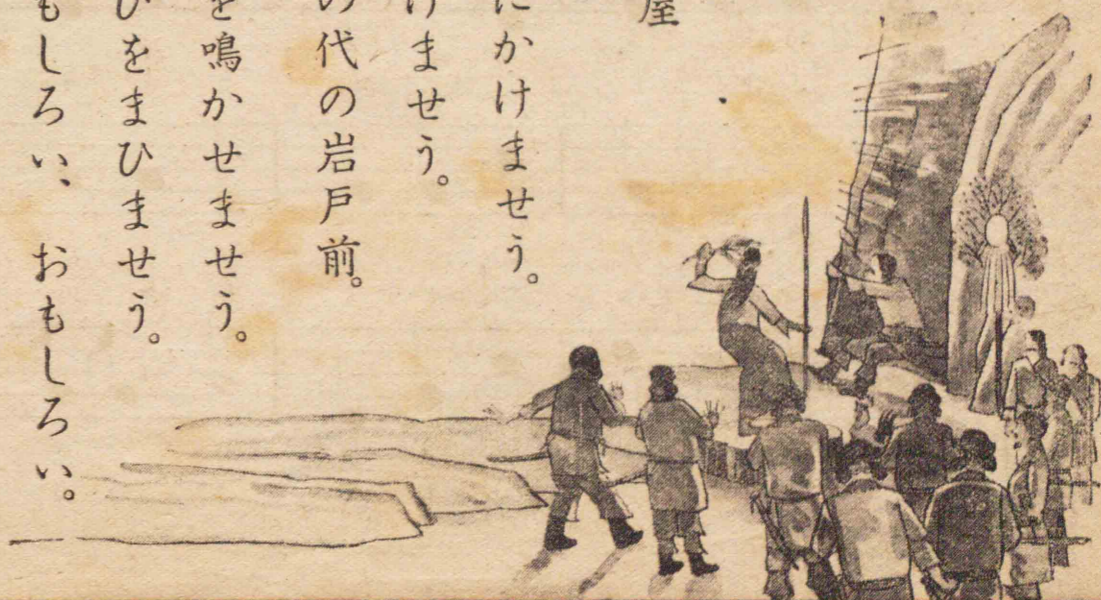 屋
にかけませう。
けませう。
の代の岩戸前。
を鳴かせませう。
ひをまひませう。
もしろい、おもしろい。